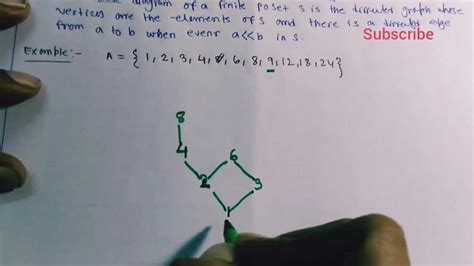 diagram of a finite poset S is the directed graph whose
vertices are the elements of S and there is a directed edge
from a to b when ever a<<b in S.
Subscribe
Example:- A = {1, 2, 3, 4, 6, 8, 9, 12, 18, 24}
8
4 6
2 3
1